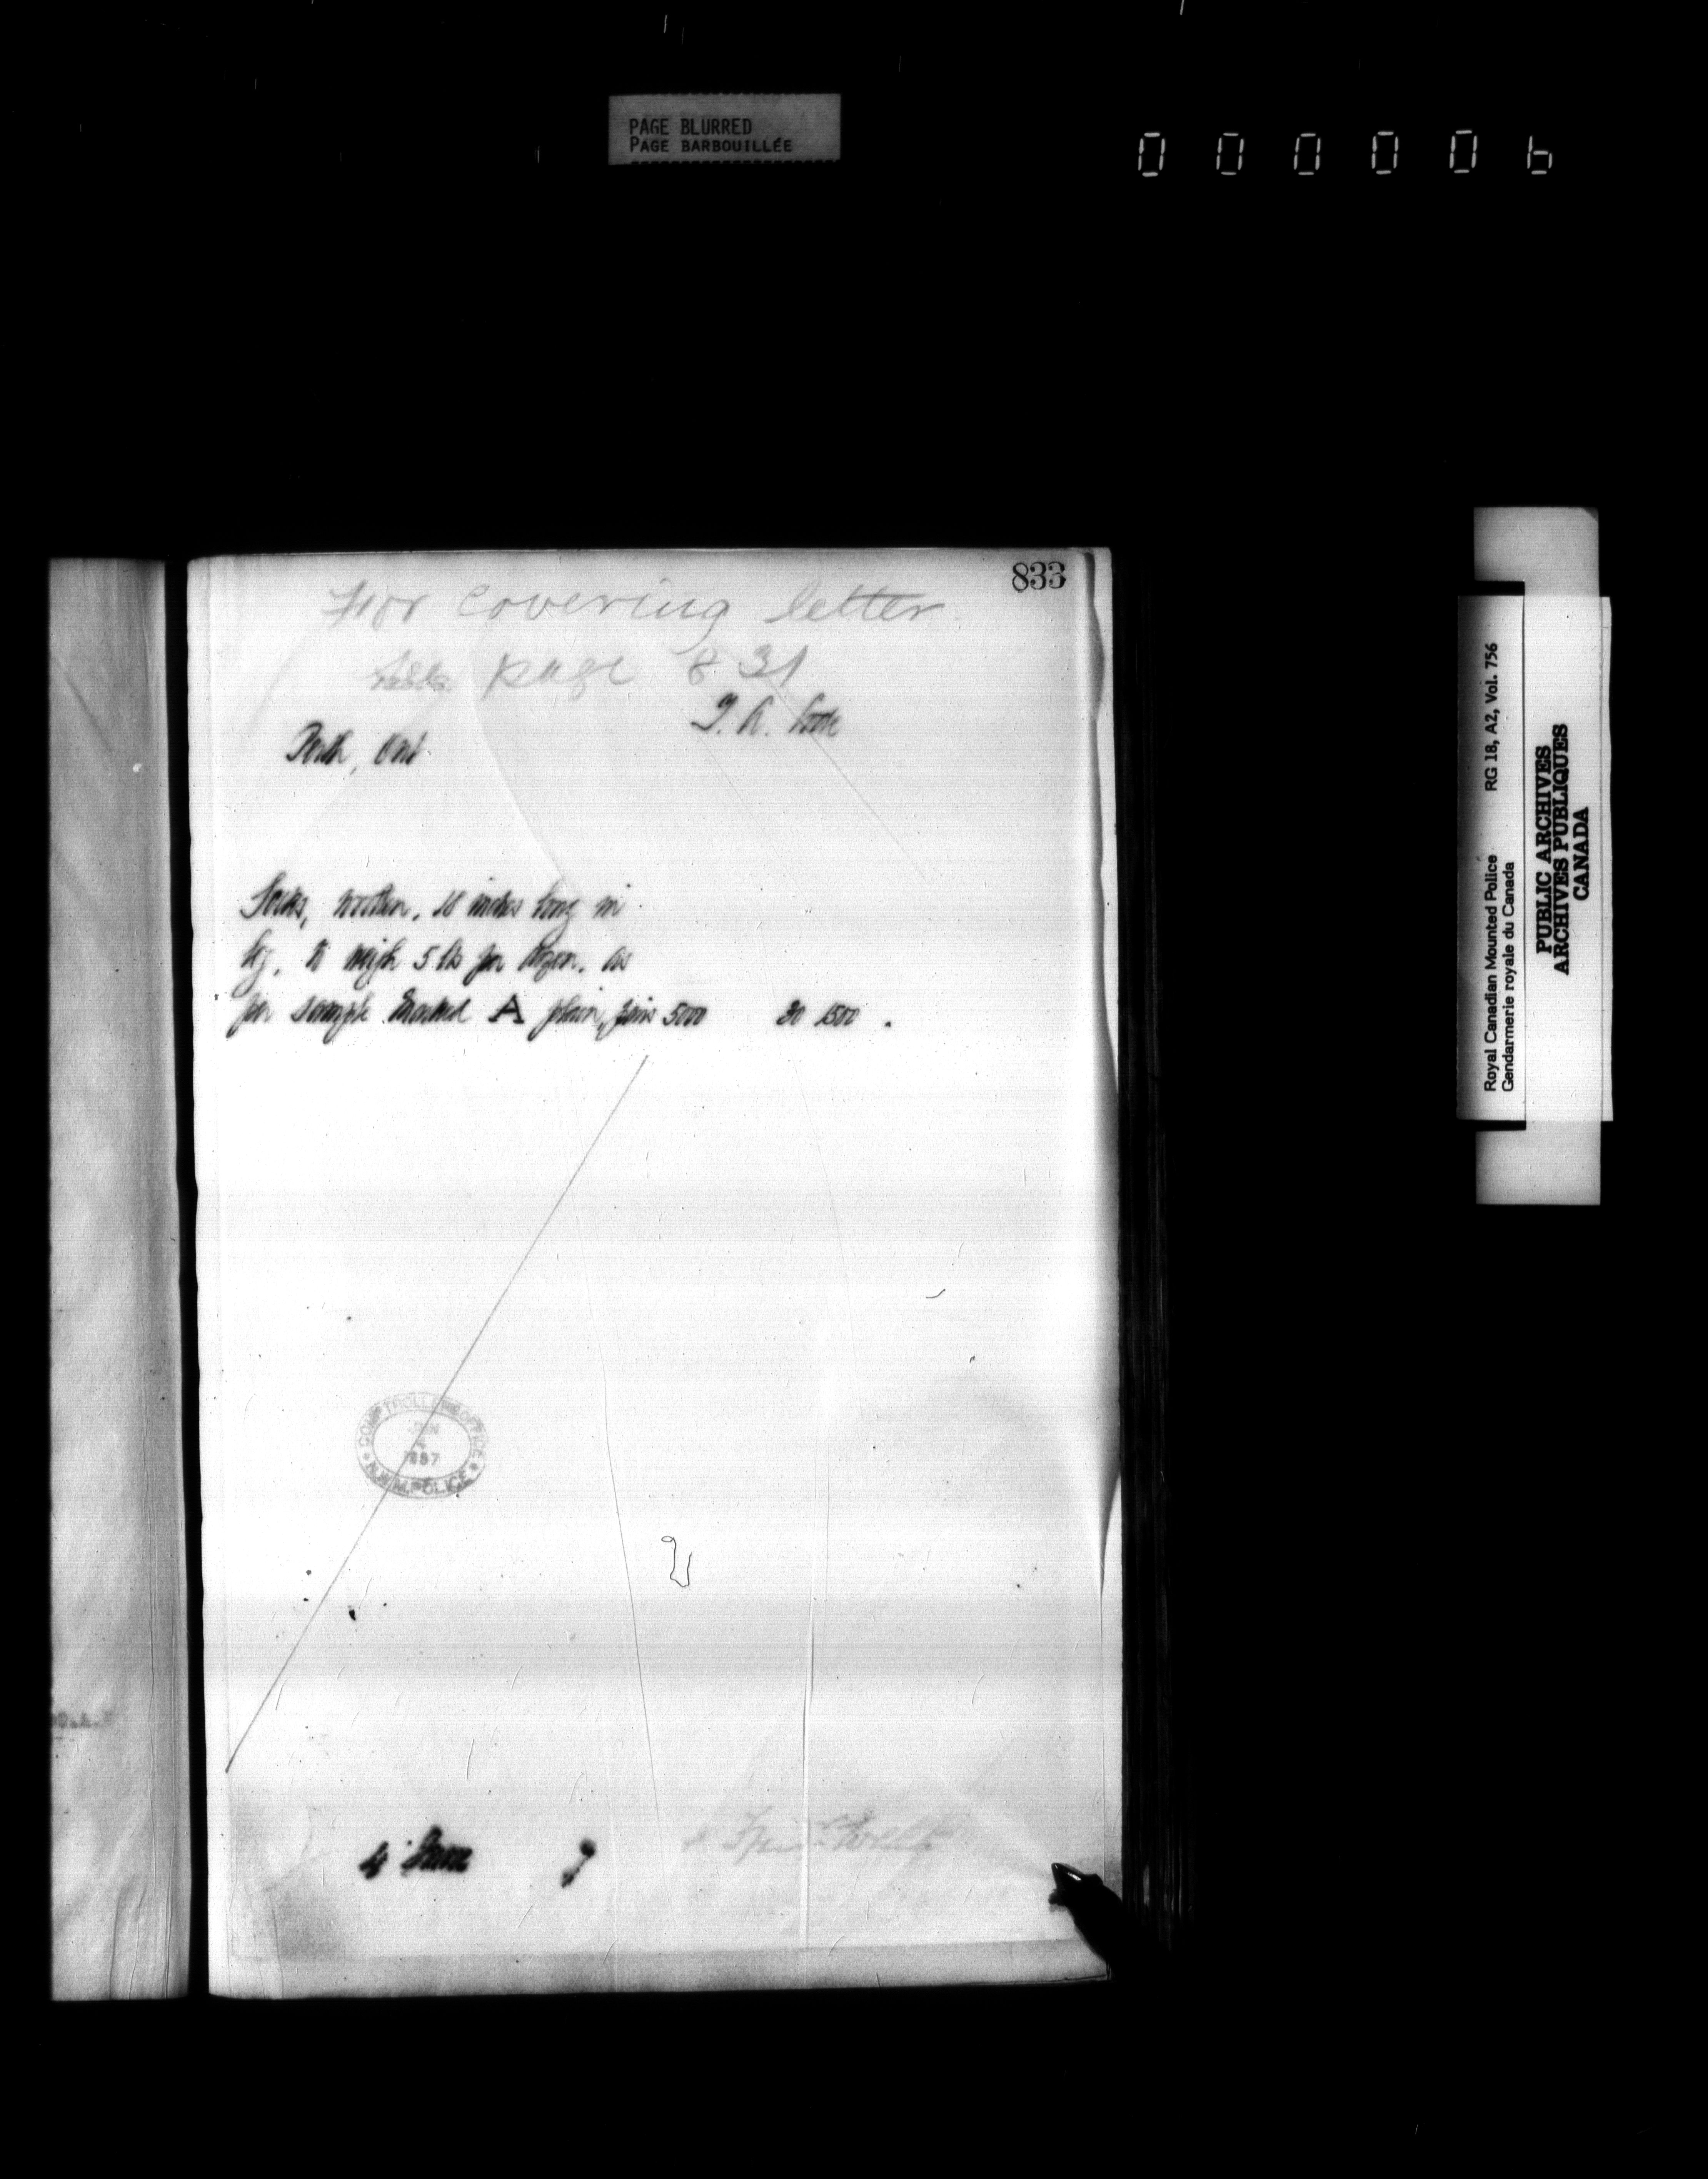 PAGE BLURRED
PAGE BARBOUILLÉE
000006
833
For covering letter
see page 831
T. A. Code
Perth, Ont
Socks, woollen, 18 inches long in
leg, to weigh 5 lbs per dozen, as
per sample marked A plain, pairs 5000 30 1500.
COMPTROLLER'S OFFICE
JAN
4
1897
N.W.M. POLICE
4 June 7
Fred White
Royal Canadian Mounted Police RG 18, A2, Vol. 756
Gendarmerie royale du Canada
PUBLIC ARCHIVES
ARCHIVES PUBLIQUES
CANADA